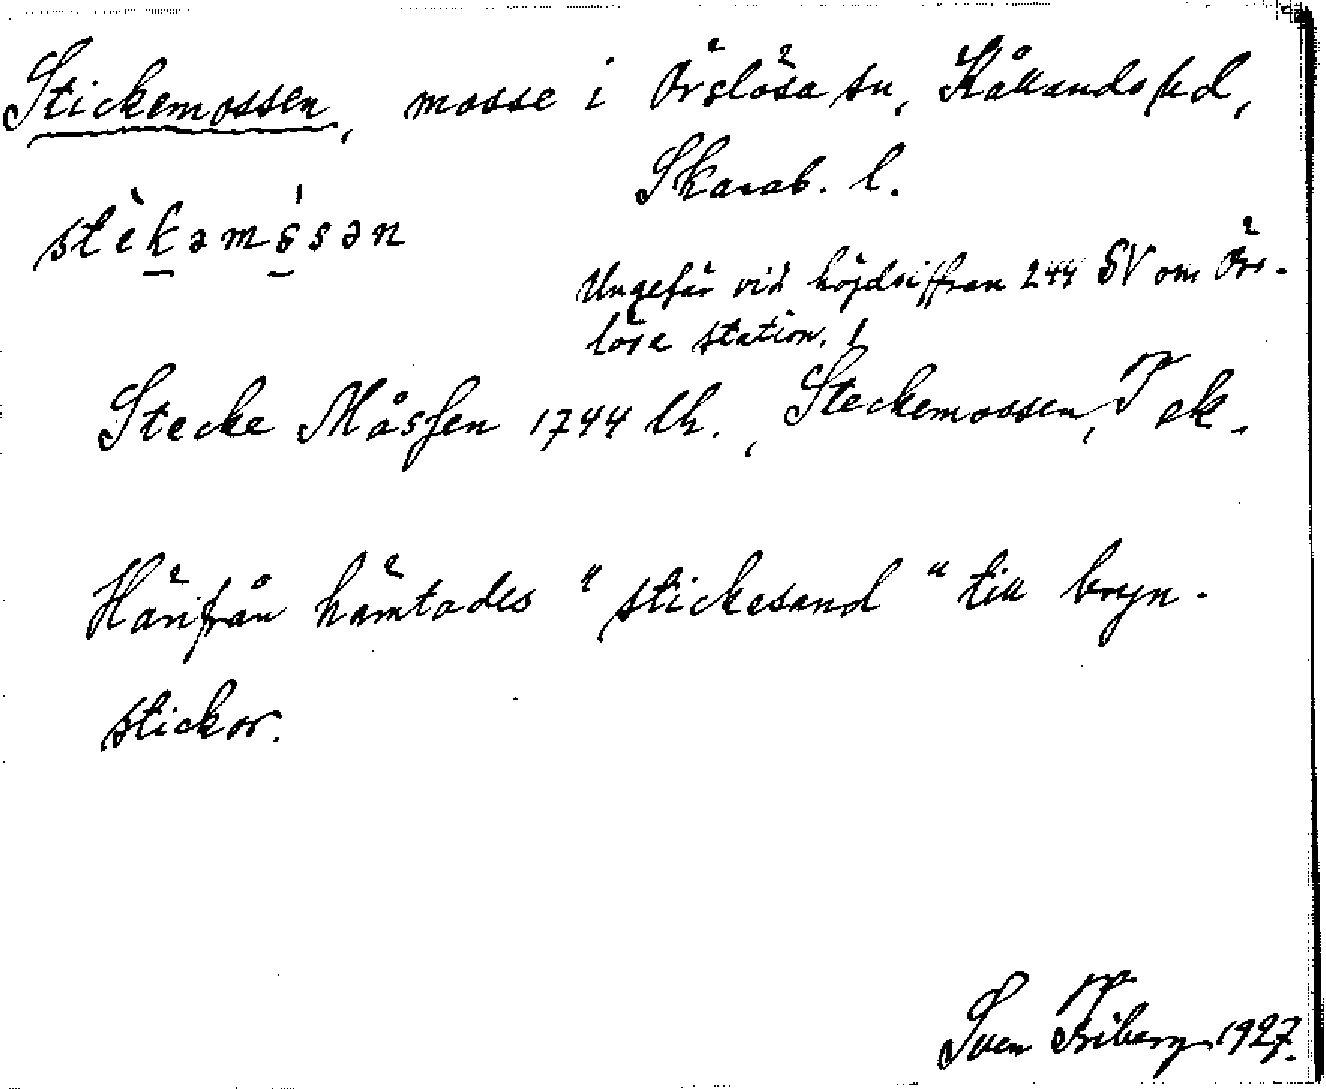 Stickemossen, mosse i Örslösa sn, Kållands hd,
Skarab. l.
stèkəmósən
Ungefär vid höjdsiffran 244 SV om Örs-
lösa station.
Stecke Måssen 1744 lh., Steckemossen, T ek.
Härifrån hämtades "stickesand" till bryn-
stickor.
Sven Friberg 1927.